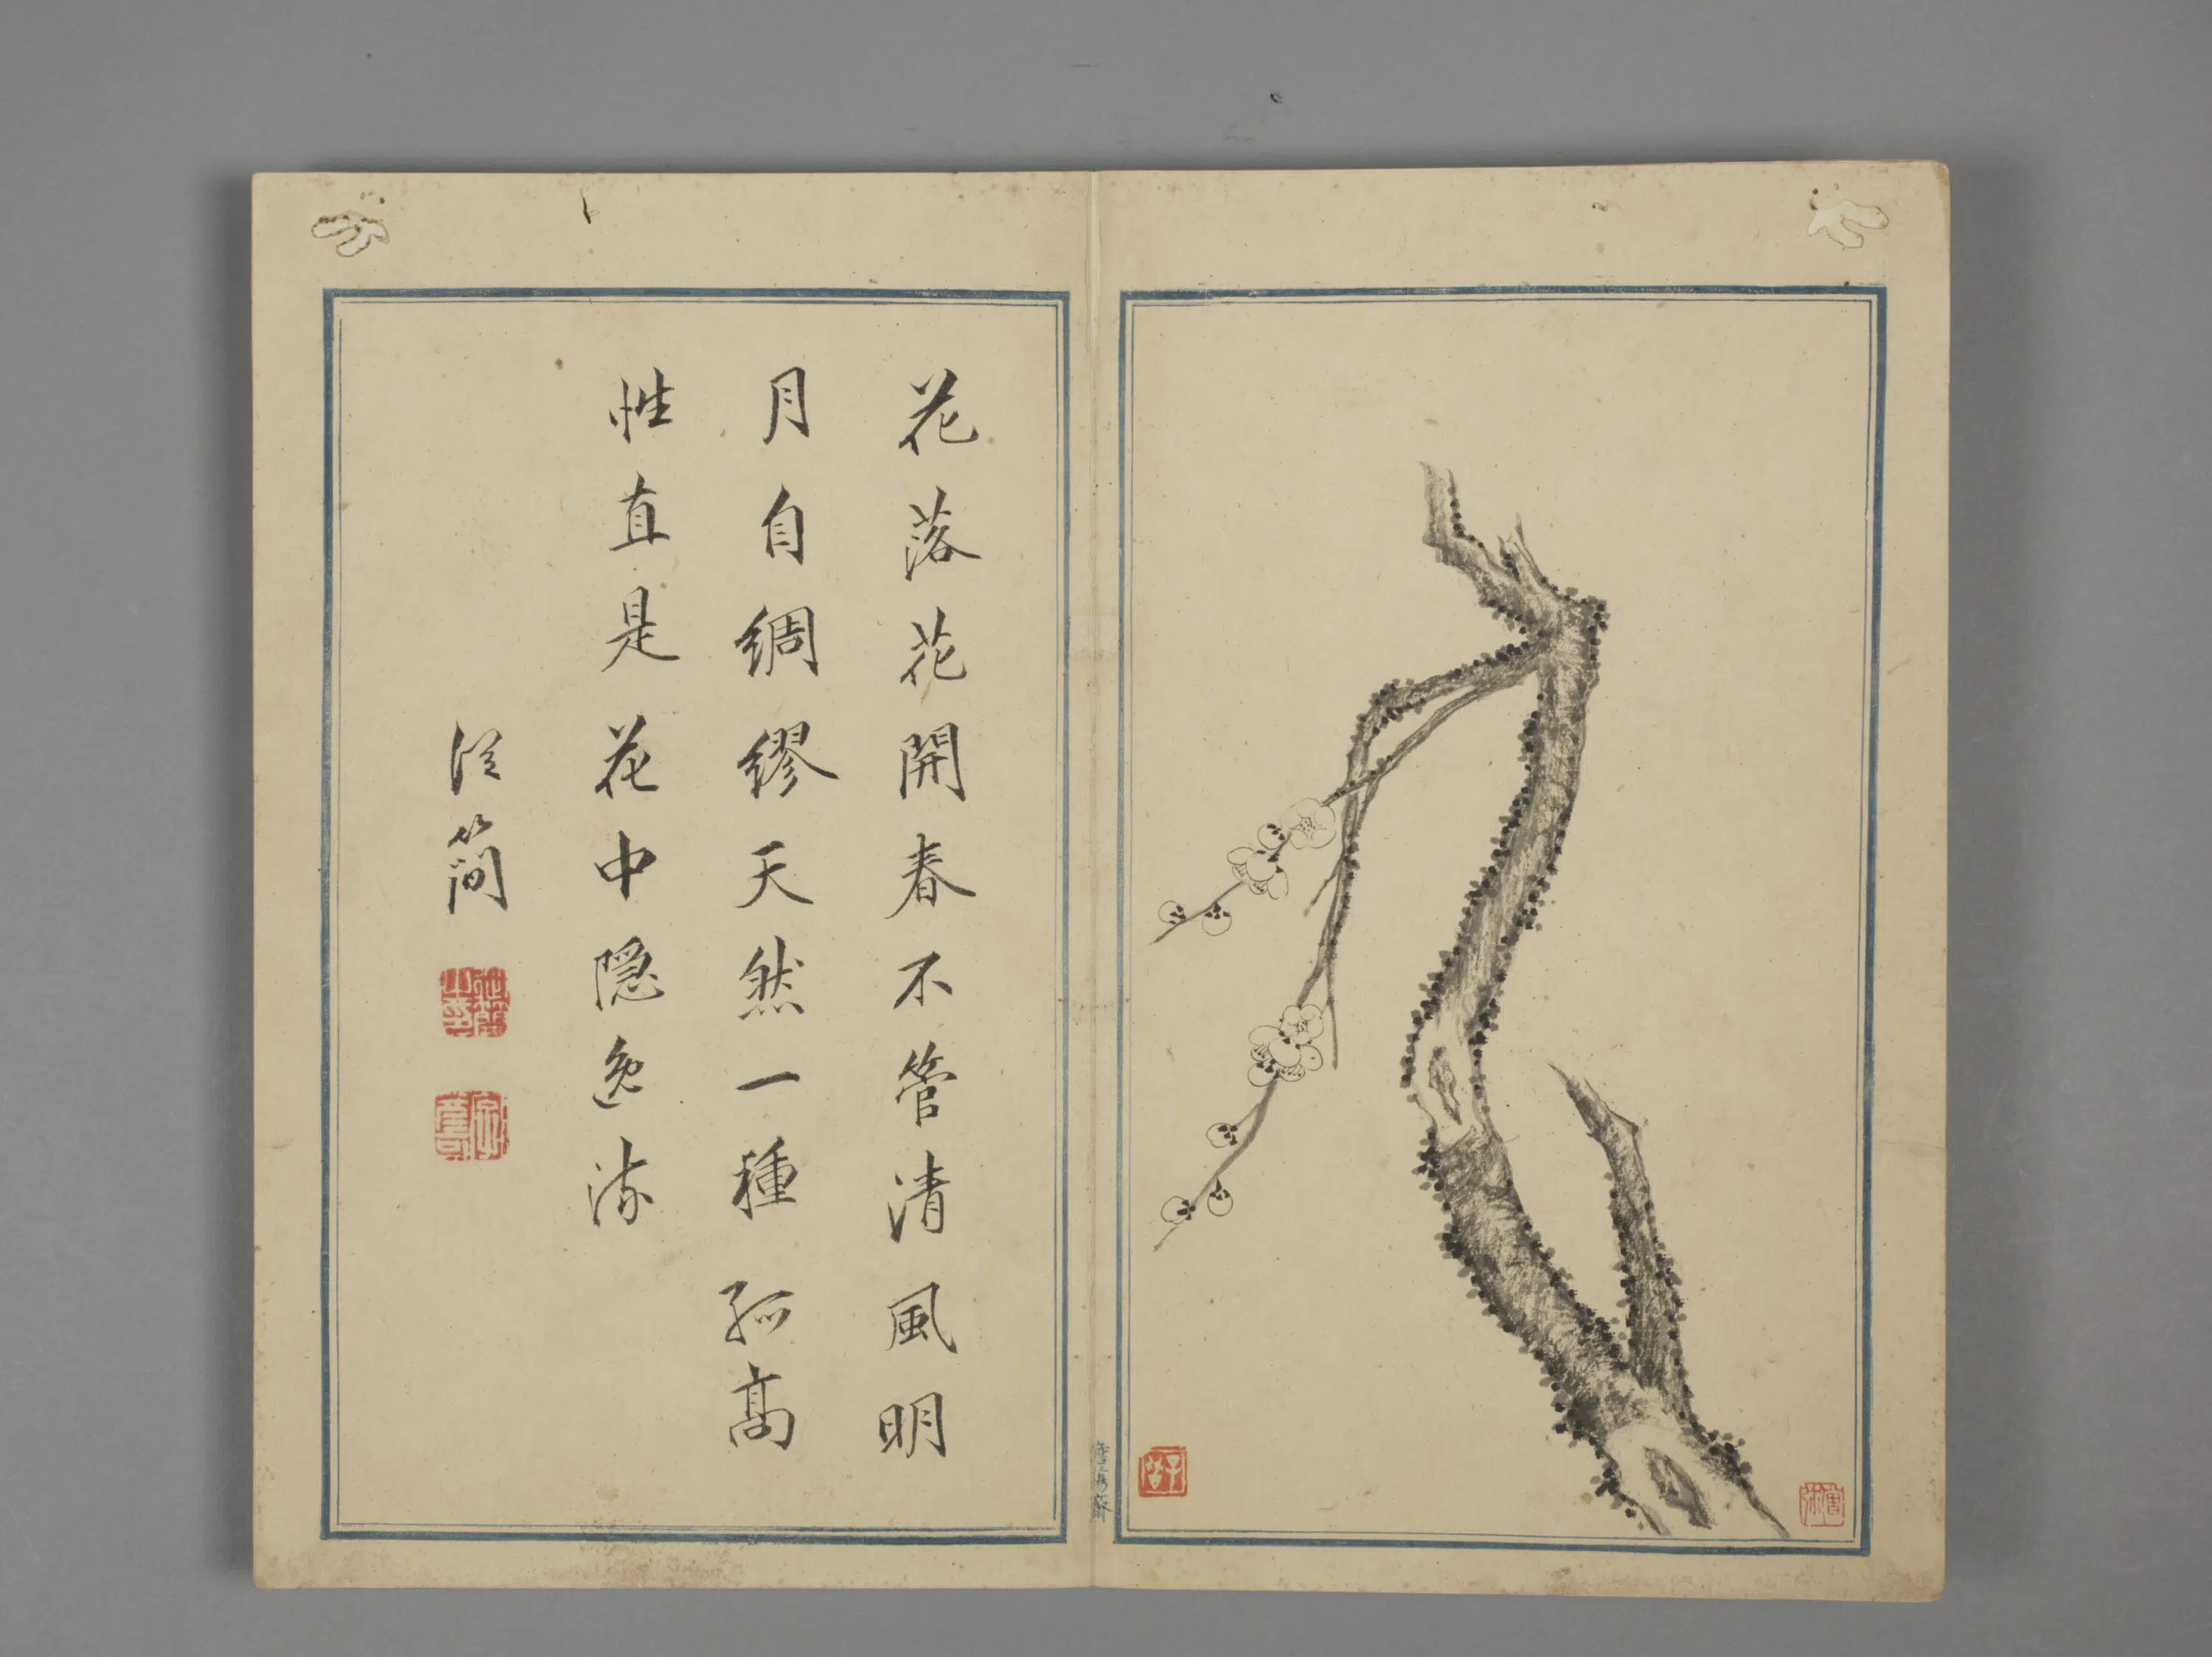 花落花開春不管清風明
月自綢繆天然一種孤高
性直是花中隐逸流
從簡